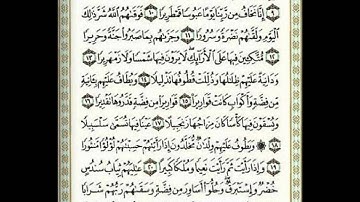 ٩ إِنَّا نَخَافُ مِن رَّبِّنَا يَوْمًا عَبُوسًا قَمْطَرِيرًا ١٠ فَوَقَىٰهُمُ ٱللَّهُ شَرَّ ذَٰلِكَ
ٱلْيَوْمِ وَلَقَّىٰهُمْ نَضْرَةً وَسُرُورًا ١١ وَجَزَىٰهُم بِمَا صَبَرُوا۟ جَنَّةً وَحَرِيرًا
١٢ مُّتَّكِـِٔينَ فِيهَا عَلَى ٱلْأَرَآئِكِ لَا يَرَوْنَ فِيهَا شَمْسًا وَلَا زَمْهَرِيرًا ١٣
وَدَانِيَةً عَلَيْهِمْ ظِلَٰلُهَا وَذُلِّلَتْ قُطُوفُهَا تَذْلِيلًا ١٤ وَيُطَافُ عَلَيْهِم بِـَٔانِيَةٍ
مِّن فِضَّةٍ وَأَكْوَابٍ كَانَتْ قَوَارِيرَا۠ ١٥ قَوَارِيرَا۟ مِن فِضَّةٍ قَدَّرُوهَا تَقْدِيرًا ١٦
وَيُسْقَوْنَ فِيهَا كَأْسًا كَانَ مِزَاجُهَا زَنجَبِيلًا ١٧ عَيْنًا فِيهَا تُسَمَّىٰ سَلْسَبِيلًا
١٨ ۞ وَيَطُوفُ عَلَيْهِمْ وِلْدَٰنٌ مُّخَلَّدُونَ إِذَا رَأَيْتَهُمْ حَسِبْتَهُمْ لُؤْلُؤًا مَّنثُورًا
١٩ وَإِذَا رَأَيْتَ ثَمَّ رَأَيْتَ نَعِيمًا وَمُلْكًا كَبِيرًا ٢٠ عَٰلِيَهُمْ ثِيَابُ سُندُسٍ
خُضْرٌ وَإِسْتَبْرَقٌ وَحُلُّوٓا۟ أَسَاوِرَ مِن فِضَّةٍ وَسَقَىٰهُمْ رَبُّهُمْ شَرَابًا